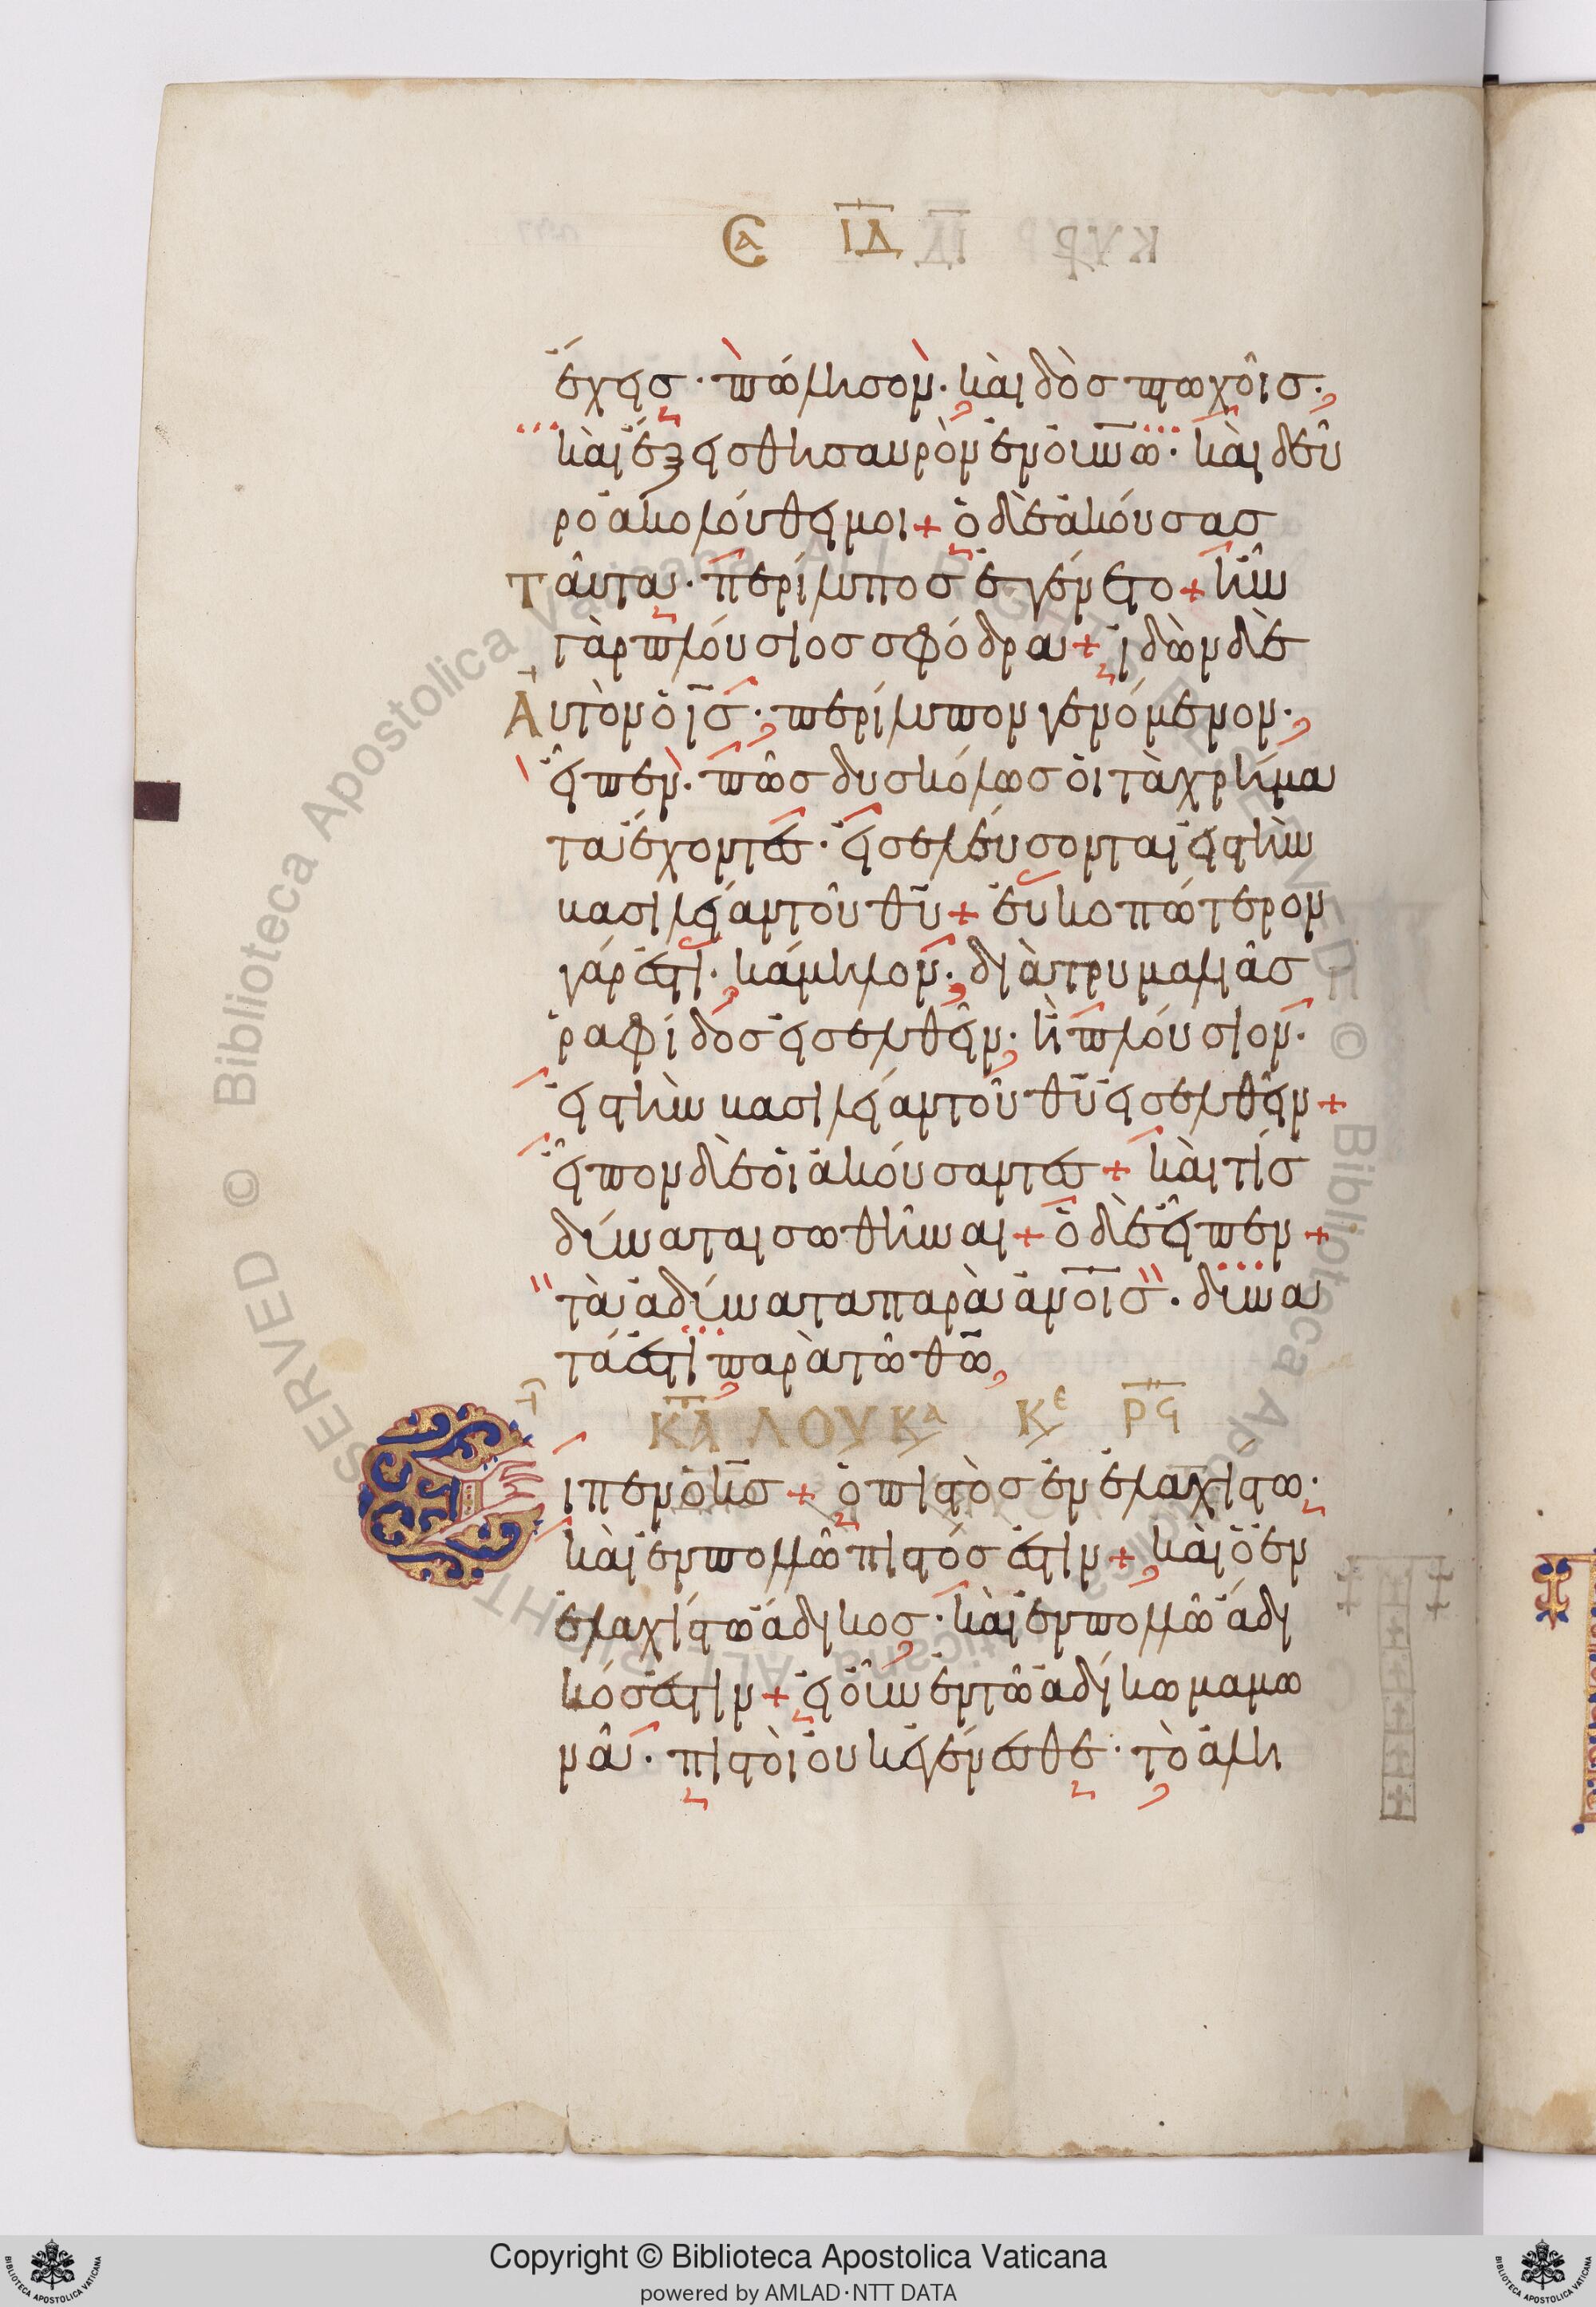 Cα ΙΔ
ἔχεις· πώλησον· καὶ δὸς πτωχοῖς·
καὶ ἕξεις θησαυρὸν ἐν οὐνῶ· καὶ δεῦ
ρο ἀκολούθει μοι + ὁ δὲ ἀκούσας
ταῦτα· περίλυπος ἐγένετο + ἦν
γὰρ πλούσιος σφόδρα + ἰδὼν δὲ
Αὐτὸν ὁ ις· περίλυπον γενόμενον·
εἶπεν· πῶς δυσκόλως οἱ τὰ χρήμα
τα ἔχοντες· εἰσελεύσονται εἰς τὴν
βασιλείαν τοῦ θυ + εὐκοπώτερον
γάρ ἐστι· κάμηλον· διὰ τρυμαλιᾶς
ῥαφίδος εἰσελθεῖν· ἢ πλούσιον·
εἰς τὴν βασιλείαν τοῦ θυ εἰσελθεῖν +
εἶπον δὲ οἱ ἀκούσαντες + καὶ τίς
δύναται σωθῆναι + ὁ δὲ εἶπεν +
τὰ ἀδύνατα παρὰ ανοις· δυνα
τά ἐστι παρὰ τῶ θω,
ΚΑ ΛΟΥΚα Κε ΡϚ
Εἶπεν ὁ κς + ὁ πιστὸς ἐν ἐλαχίστω·
καὶ ἐν πολλῶ πιστός ἐστιν + καὶ ὁ ἐν
ἐλαχίστω ἄδικος· καὶ ἐν πολλῶ ἄδι
κός ἐστιν + εἰ οὖν ἐν τῶ ἀδίκω μαμω
νᾶ· πιστοὶ οὐκ ἐγένεσθε· τὸ ἀλη
Copyright © Biblioteca Apostolica Vaticana
powered by AMLAD·NTT DATA